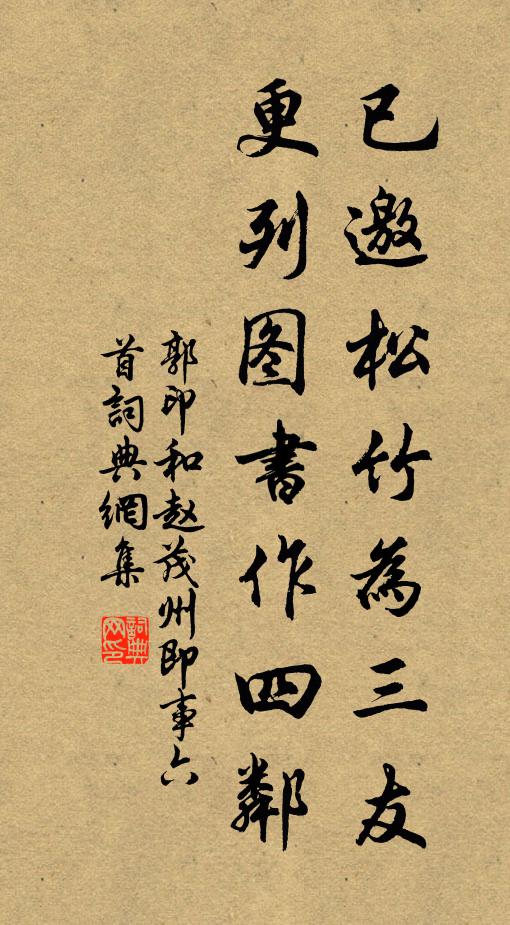 已邀松竹為三友
更列图書作四鄰
郭印和赵茂州即事六
首詞典網集
詞典網印